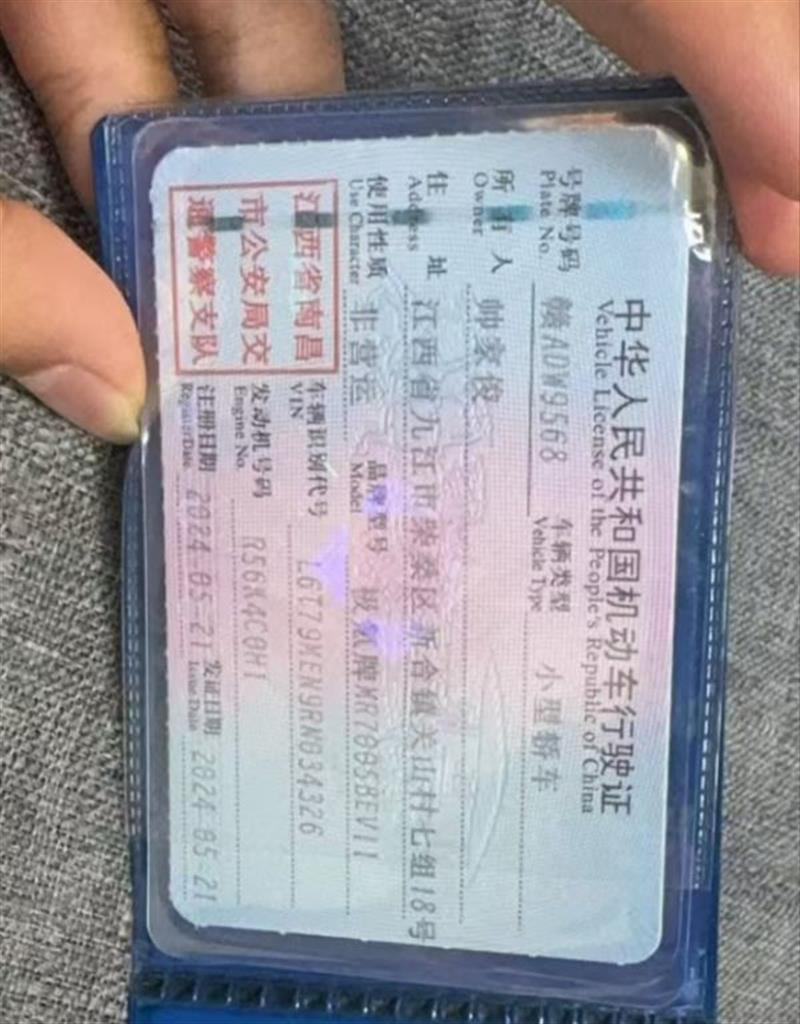 中华人民共和国机动车行驶证
Vehicle License of the People's Republic of China
号牌号码 赣ADW9568 车辆类型 小型轿车
Plate No. Vehicle Type
所有人 帅家俊
Owner
住址 江西省九江市柴桑区新合镇关山村七组18号
Address
使用性质 非营运 品牌型号 极氪牌MR7005BEV11
Use Character Model
江西省南昌
市公安局交
通警察支队
车辆识别代号 L6T79MEN9RN034326
VIN
发动机号码 R56K4C0H1
Engine No.
注册日期 2024-05-21 发证日期 2024-05-21
Register Date Issue Date